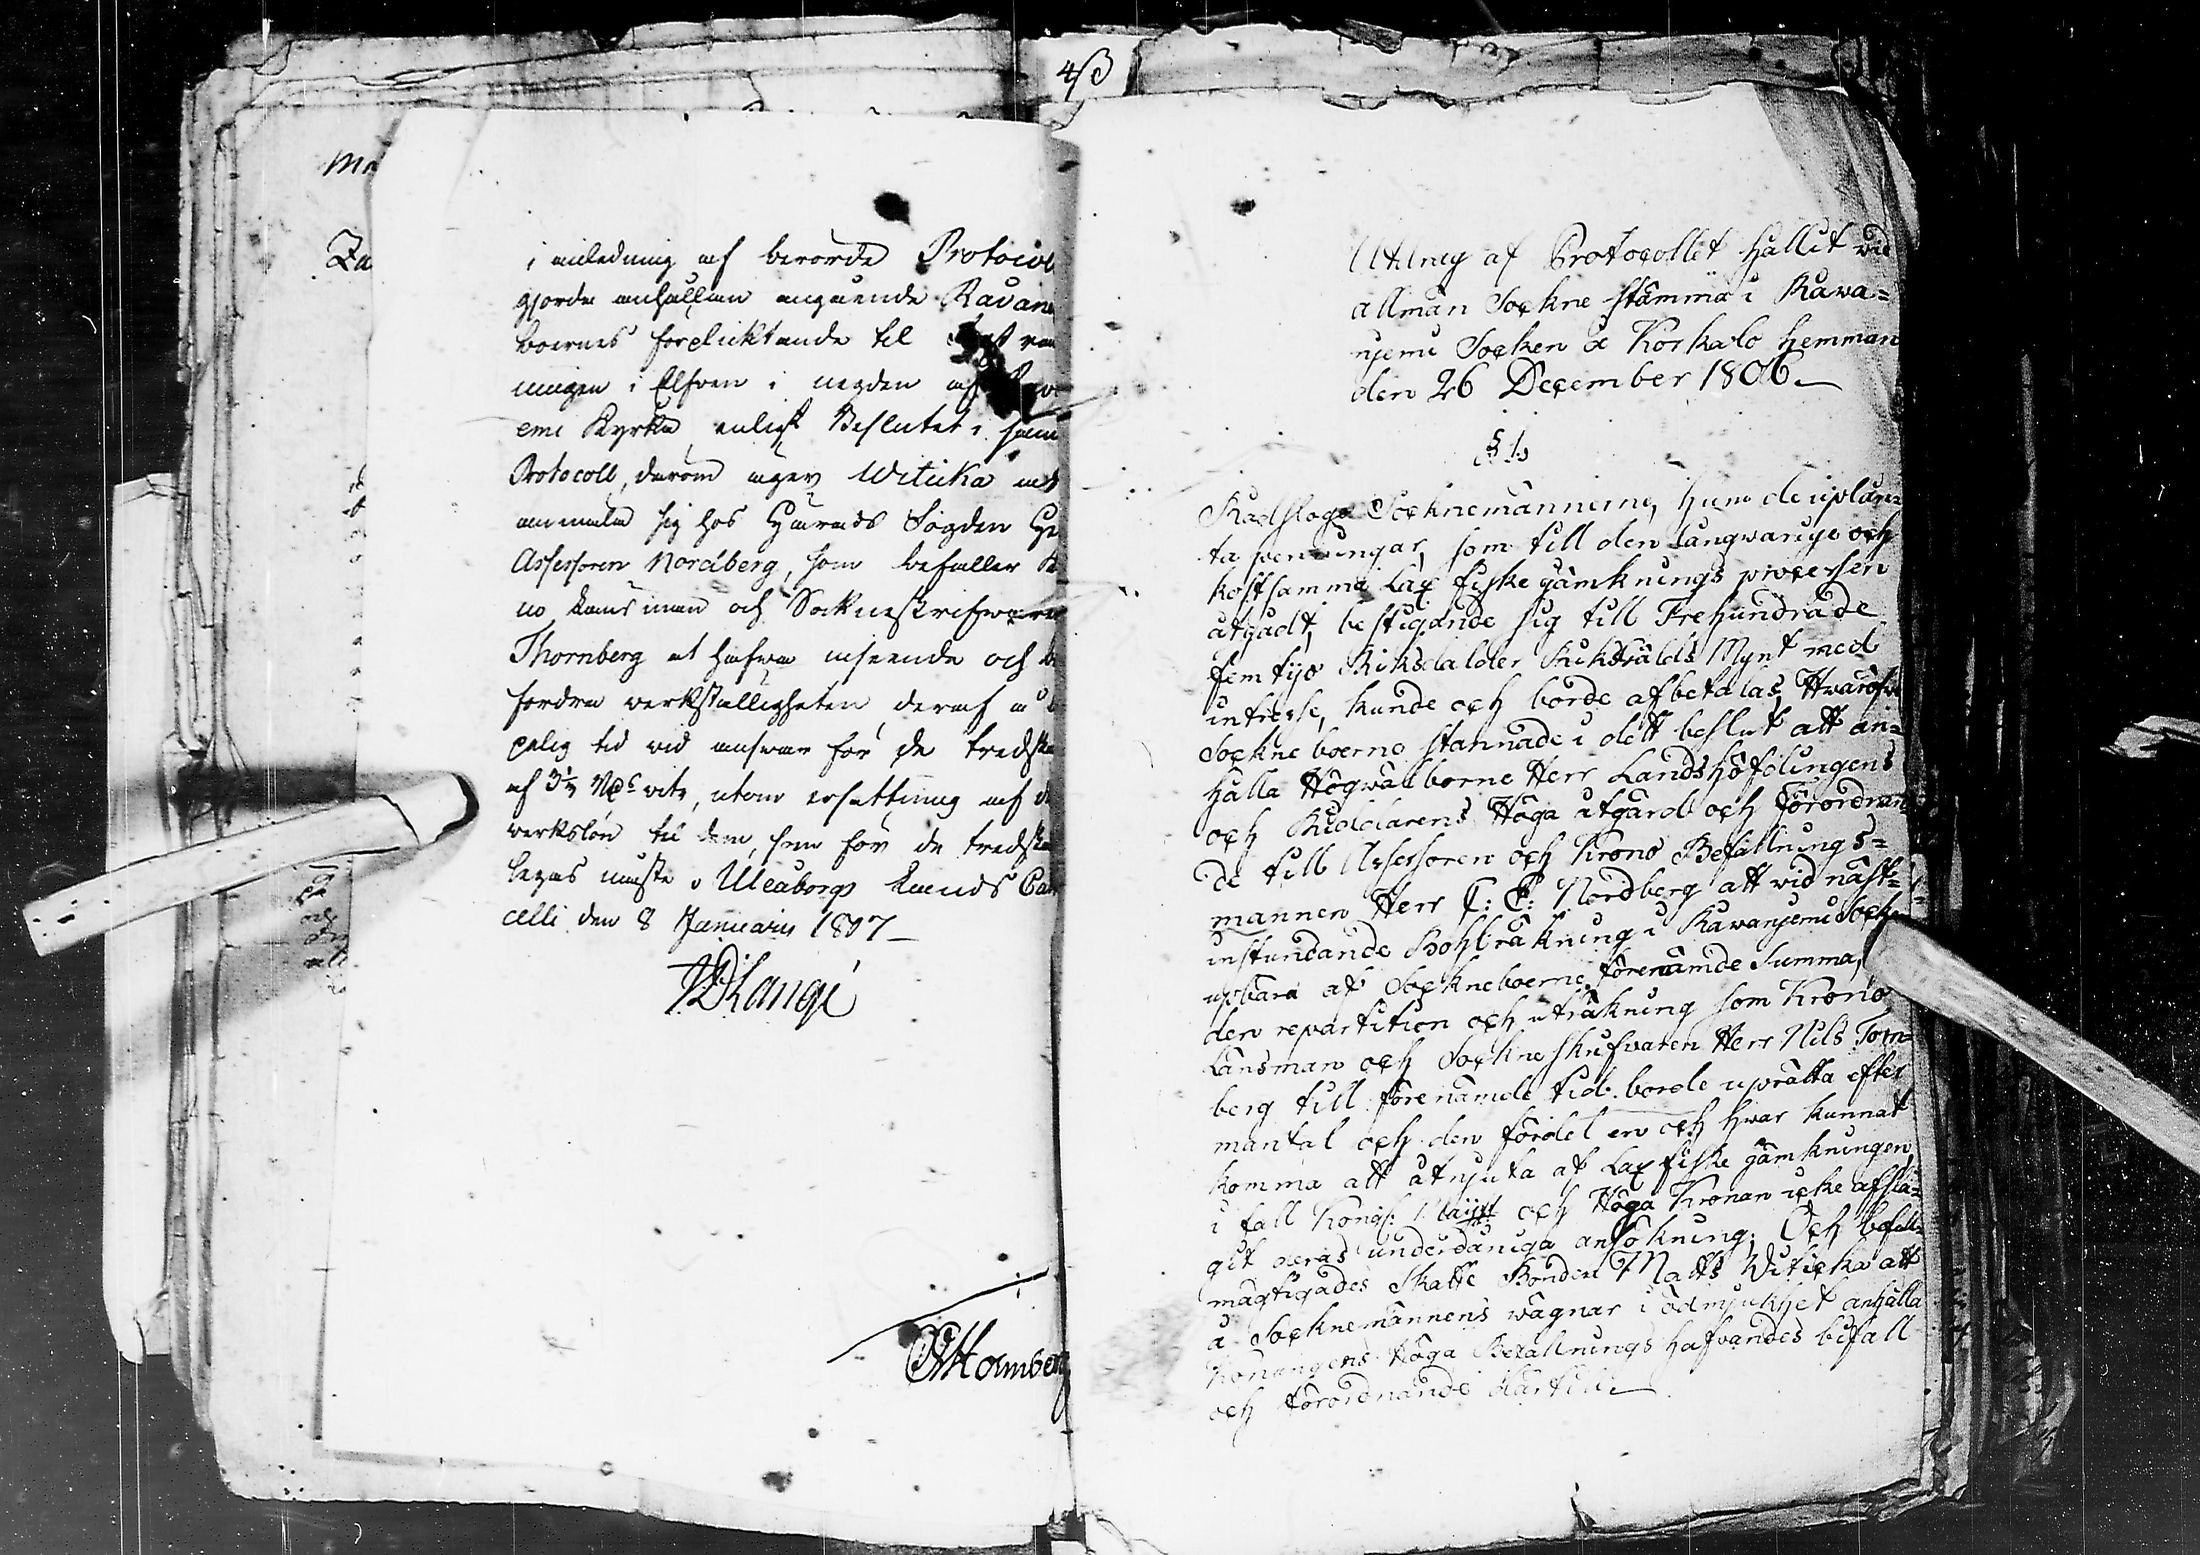 i anledning af berörde Protocol
gjorde anhållan angående Ravan
boernes förplicktande til
ningen i Elfven i negden af
emi Kyrka enligt Beslutet i sam
Protocoll, derom äger Witicka at
anmäla sig hos Härads Fogden H
Assessoren Nordberg, som befaller K
no Länsman och Sockneskrifvare
Thornberg at hafva inseende och
fordra verkställigheten deraf å
pelig tid vid answar för de tredska
af 3 1/3 Rd vite, utom ersättning af d
verkslön til dem, som för de tredska
legas måste, Uleåborgs Lands Can
celli den 8 Januarii 1807
Lange
Holmberg
4
Utdrag af Protocollet hållit vid
allmän Sockne stämma i Rawa=
njemi Socken å Korkalo hemman
den 26 December 1806.
§ 1.
Rådsloge Socknemännerne, huru de uplån=
ta penningar, som till den långwarige och
kostsamma Lax fiske jämknings processen
åtgådt, bestigande sig till Trehundrade
femtijo Riksdalder Riksgälds Mynt med
intresse, kunde och borde afbetalas, Hwaröfv
Sockneboerne stannade i dett beslut att an=
hålla Högwälborne Herr Landshöfdingens
och Riddarens Höga åtgärd och förordnan
de till Assessoren och Krono Befallnings=
mannen Herr C: E: Nordberg att vid näst=
instundande Bohlräkning i Rawanjemi Sock
upbära af Sockneboerne förenämde Summa,
den repartition och uträkning som Krono
Länsman och Sockne skrifvaren Herr Nils Torn=
berg till förenämde tid borde uprätta efter
mantal och den fördel en och hwar kunnat
komma att åtnjuta af Lax fiske jämkningen,
i fall Kongl: Maijtt och Höga Kronan icke afsla=
git deras underdåniga ansökning; Och befull=
mägtigades Skatte Bonden Matts Witicka att
å Socknemännens wägnar i ödmjukhet anhålla
Konungens Höga Befallnings hafvandes bifall
och förordnande därtill.